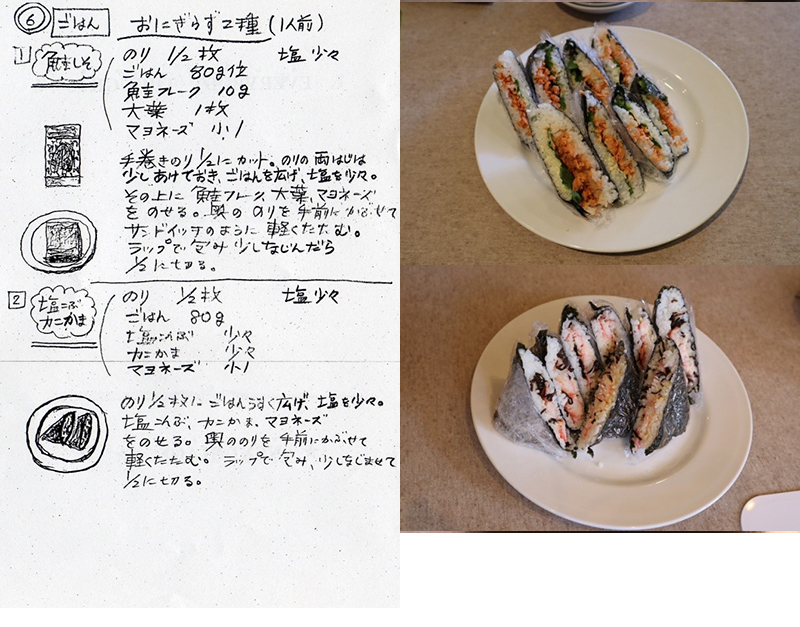 ⑥ ごはん おにぎらず2種(1人前)
1 鮭しそ
のり 1/2枚 塩少々
ごはん 80g位
鮭フレーク 10g
大葉 1枚
マヨネーズ 小1
手巻きのり1/2にカット。のりの両はじは
少しあけておき、ごはんを広げ、塩を少々。
その上に鮭フレーク、大葉、マヨネーズ
をのせる。奥ののりを手前にかぶせて
サンドイッチのように軽くたたむ。
ラップで包み少しなじんだら
1/2に切る。
2 塩こぶ カニかま
のり 1/2枚 塩少々
ごはん 80g
塩こんぶ 少々
カニかま 少々
マヨネーズ 小1
のり1/2枚にごはんうすく広げ、塩を少々。
塩こんぶ、カニかま、マヨネーズ
をのせる。奥ののりを手前にかぶせて
軽くたたむ。ラップで包み、少しなじませて
1/2に切る。